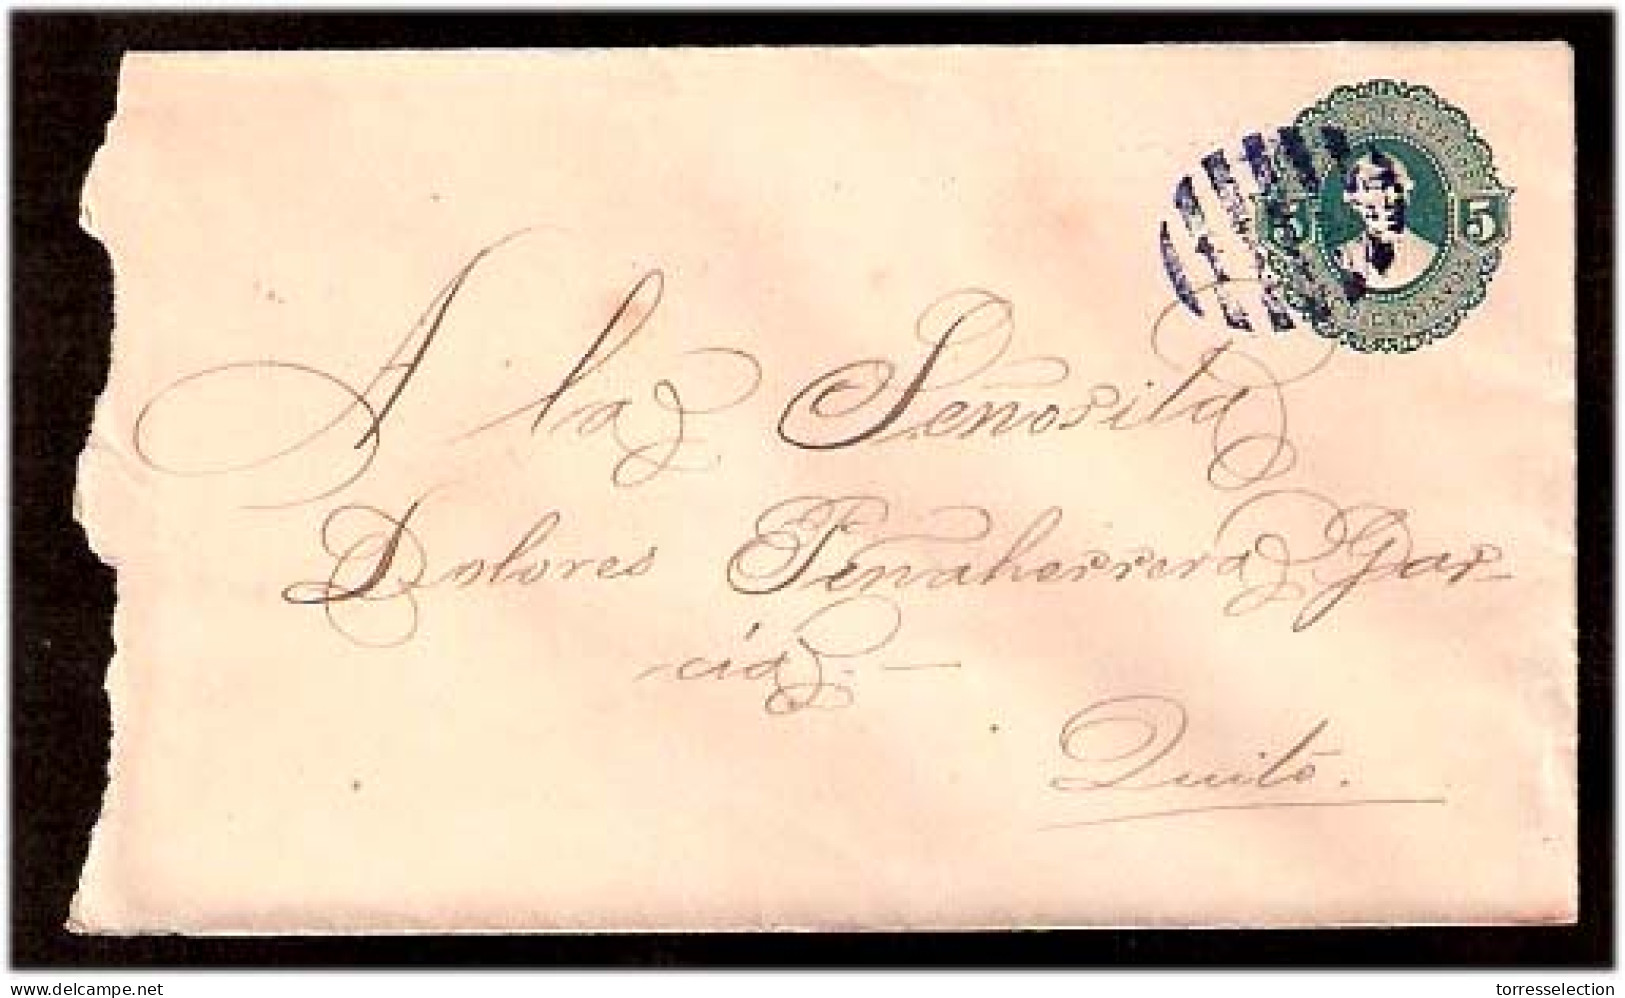 5 5
CENTAVOS
A la Señorita
Dolores Peñaherrera Gar-
cía. —
Quito.
www.delcampe.net
torresselection